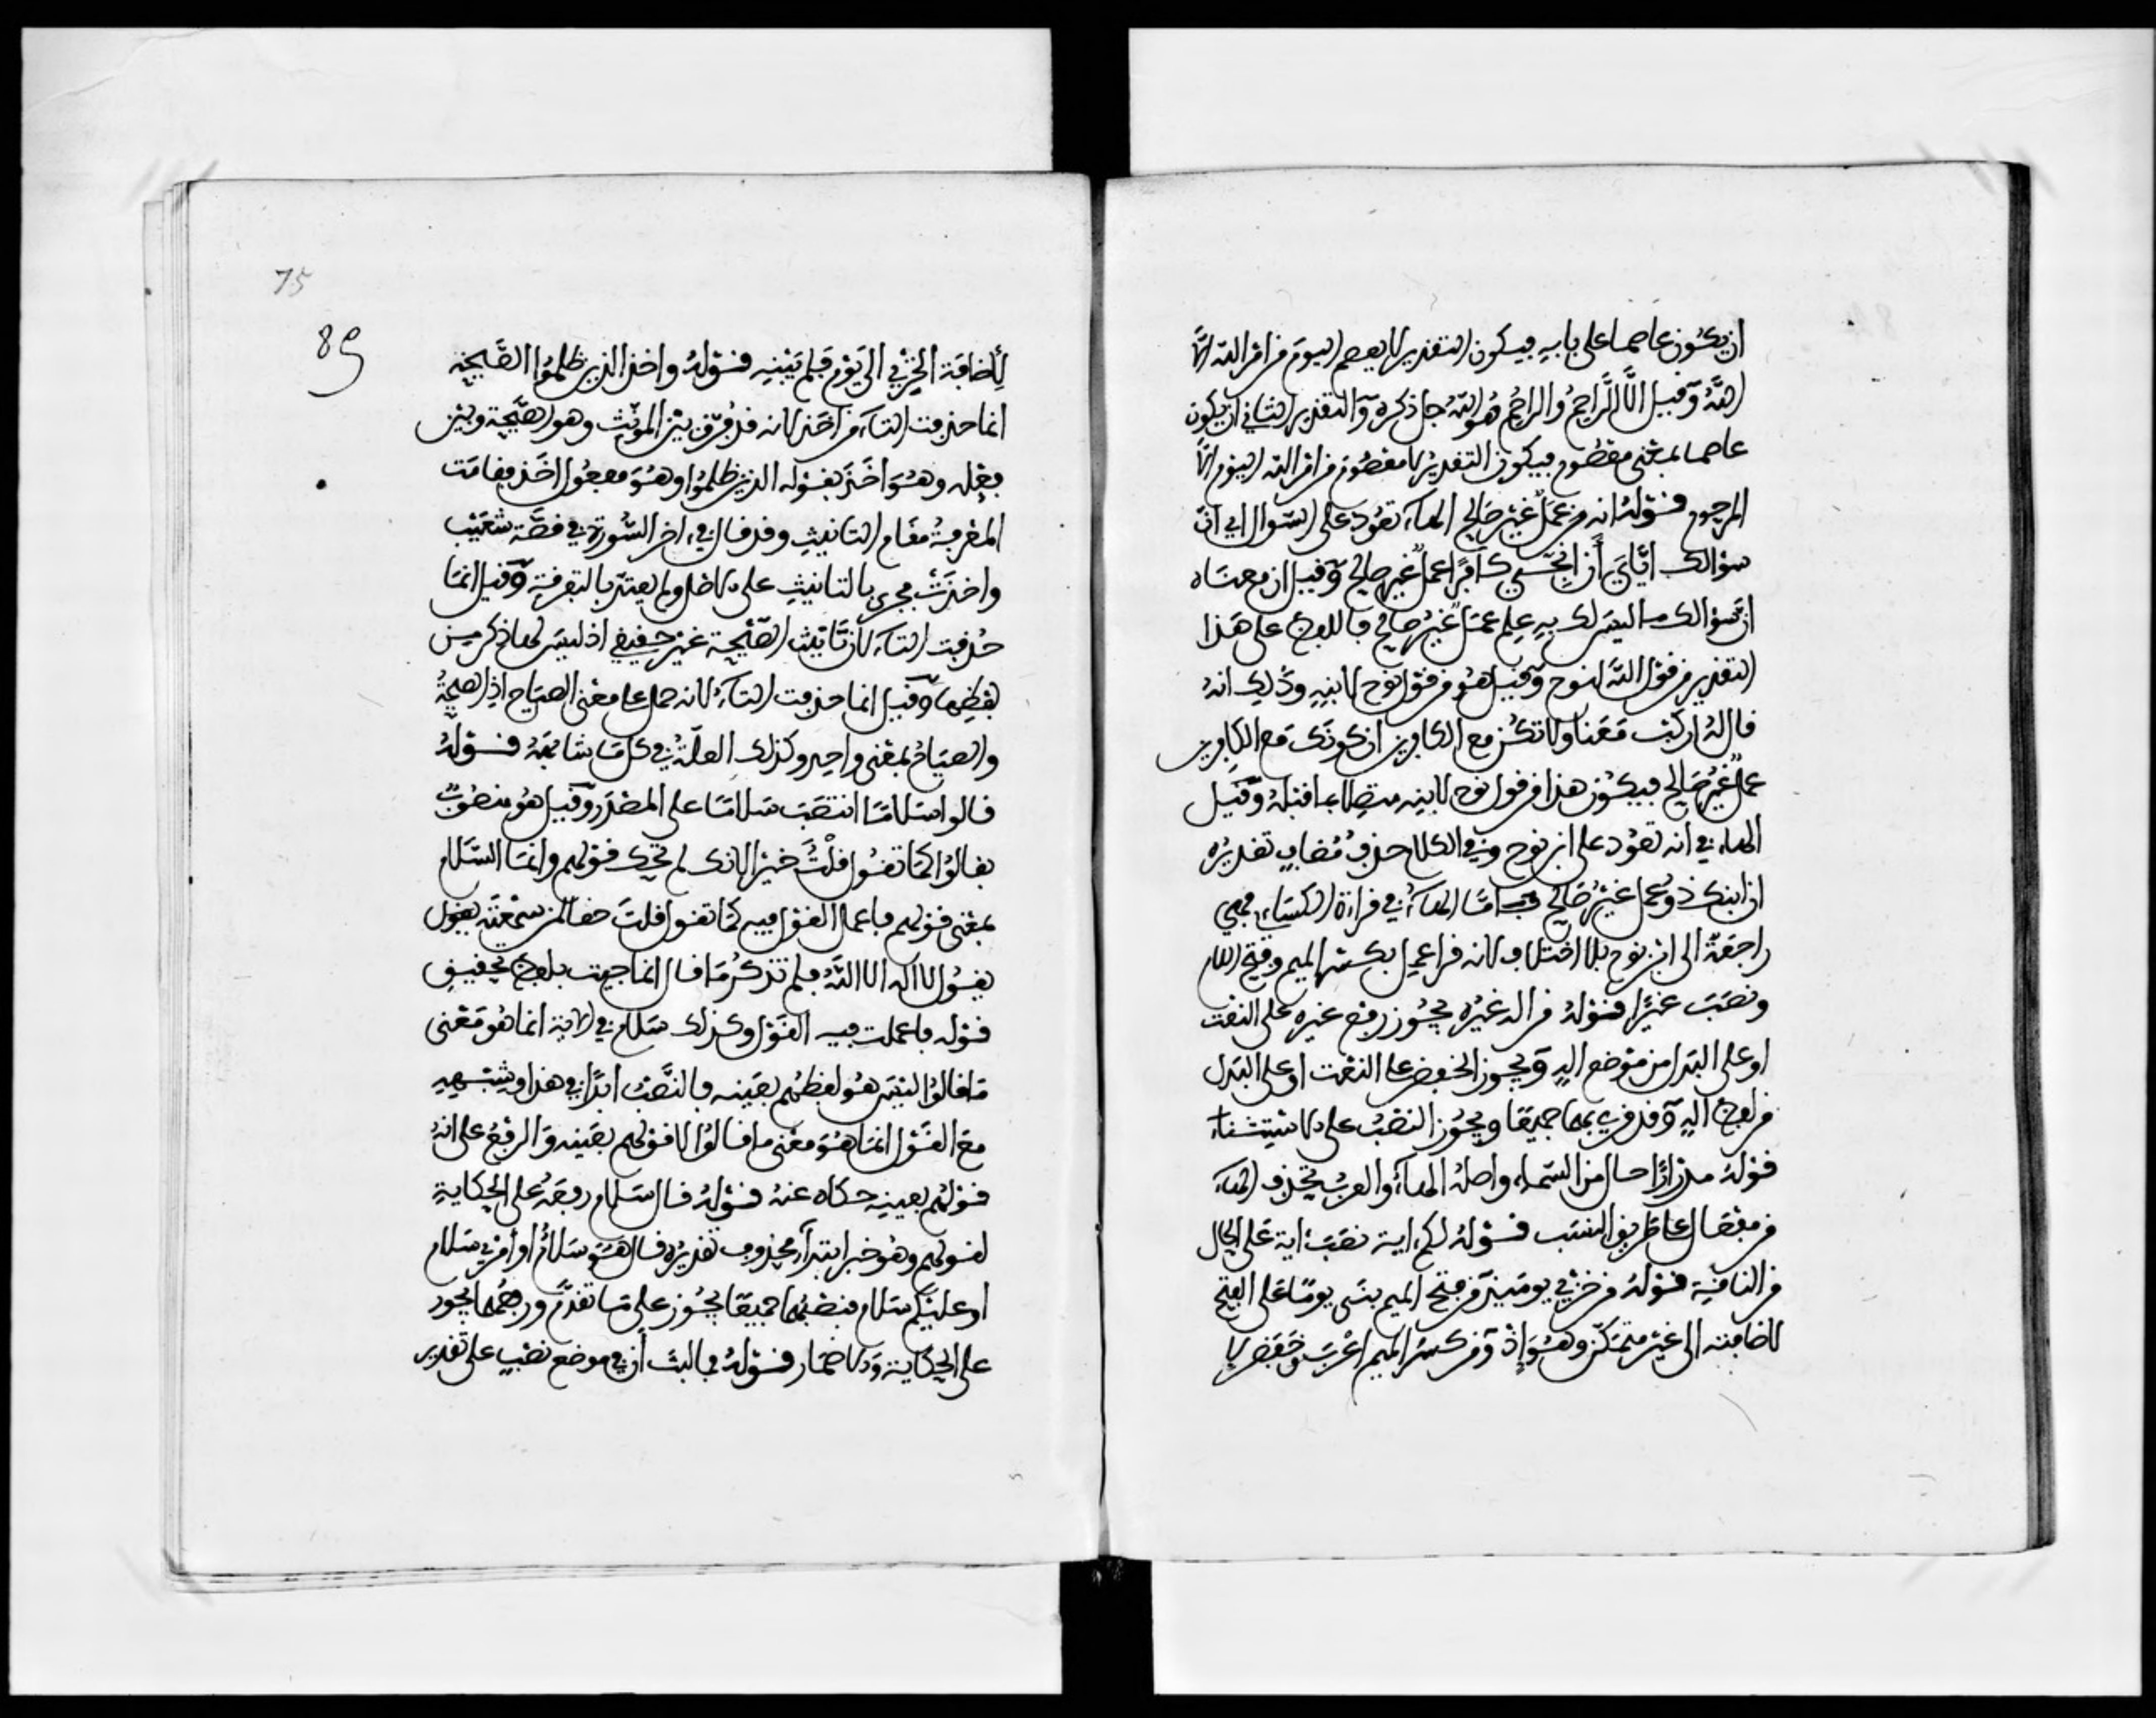 ان يكون عاصما على بابه فيكون التقدير لا يعصم اليوم من امر الله الا
الله وقيل الا الراحم والراحم هو الله جل ذكره والتقدير الثاني ان يكون
عاصما بمعنى معصوم فيكون التقدير لا معصوم من امر الله اليوم الا
المرحوم قوله انه عمل غير صالح الهاء تعود على السؤال اي ان
سؤالك اياي أن انجي كافرا عمل غير صالح وقيل ان معناه
ان سؤالك ما ليس لك به علم عمل غير صالح فاللفظ على هذا
التقدير من قول الله لنوح وقيل هو من قول نوح لابنه وذلك انه
قال له اركب معنا ولا تكن مع الكافرين ان كونك مع الكافرين
عمل غير صالح فيكون هذا من قول نوح لابنه متصلا بما قبله وقيل
الهاء في انه تعود على ابن نوح وفي الكلام حذف مضاف تقديره
ان ابنك ذو عمل غير صالح فاما الهاء في قراءة الكساءي فهي
راجعة الى ابن نوح بلا اختلاف لانه قرا عمل بكسر الميم وفتح اللام
ونصب غيرا قوله من اله غيره يجوز رفع غيره على النعت
او على البدل من موضع اله ويجوز الخفض على النعت او على البدل
من لفظ اله وقد قرئ بهما جميعا ويجوز النصب على الاستثناء
قوله مدرارا حال من السماء واصله الهاء والعرب تحذف الهاء
من مفعال على طريق النسب قوله لكم اية نصب اية على الحال
من الناقة قوله من خزي يومئذ من فتح الميم بنى يوما على الفتح
لاضافته الى غير متمكن وهو إذ ومن كسر الميم اعرب وخفض لا
75
89
لإضافة الخزي الى يوم فلم يبنه قوله واخذ الذين ظلموا الصيحة
انما حذفت التاء من اخذ لانه قد فرق بين المونث وهو الصيحة وبين
فعله وهو اخذ بقوله الذين ظلموا وهو مفعول اخذ فقامت
التفرقة مقام التانيث وقد قال في اخر السورة في قصة شعيب
واخذت فجرى بالتانيث على الاصل ولم يعتد بالتفرقة وقيل انما
حذفت التاء لان تانيث الصيحة غير حقيقي اذ ليس لها ذكر من
لفظها وقيل انما حذفت التاء لانه حمل على معنى الصياح اذ الصيحة
والصياح بمعنى واحد وكذلك العلة في كل ما شابهه قوله
قالوا سلاما انتصب سلاما على المصدر وقيل هو منصوب
بقالوا كما تقول قلت خيرا لانه لم يحك قولهم وانما السلام
بمعنى قولهم فاعمل القول فيه كما تقول قلت حقا لمن سمعته يقول
يقول لا اله الا الله فلم تذكر ما قال انما جيت بلفظ تحقيق
قوله فاعملت فيه القول وكذلك سلام في الاية انما هو معنى
ما قالوا ليس هو لفظهم بعينه فالنصب ابدا في هذا وشبهه
مع القول انما هو معنى ما قالوا لا قولهم بعينه والرفع على انه
قولهم بعينه حكاه عنه قوله قال سلام رفعه على الحكاية
لقولهم وهو خبر ابتدآء محذوف تقديره قال هو سلام او أمري سلام
او عليكم سلام فنصبهما جميعا يجوز على ما تقدم ورفعهما يجوز
على الحكاية والاضمار قوله فما لبث أن في موضع نصب على تقدير